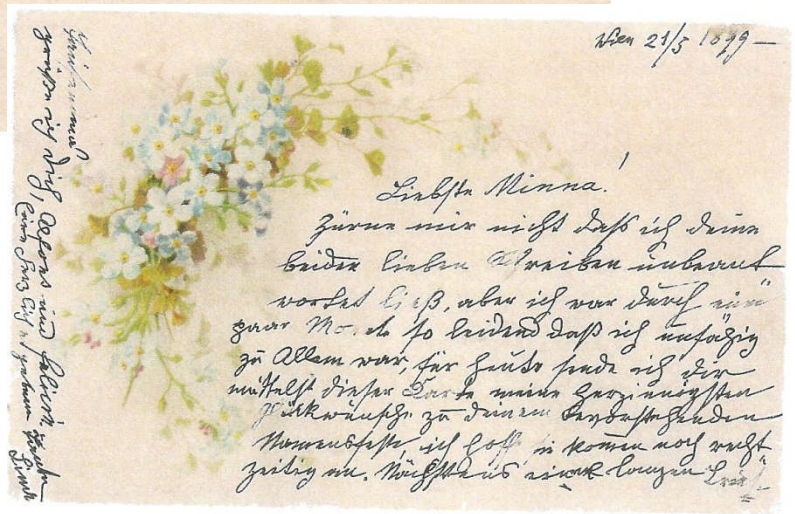 Wien 21/5 1899 –
Liebste Minna!
Zürne mir nicht daß ich deine
beider lieben Schreiben unbeant
wortet ließ, aber ich war durch ein
paar so leidend daß ich unfähig
zu Allem war, für heute sende ich dir
mittelst dieser Karte meine herzinnigsten
Glückwünsche zu deinem bevorstehenden
Namensfeste, ich hoffe sie komen noch recht
zeitig an. Nächstens einen langen Brief
grüße ich Dich, und